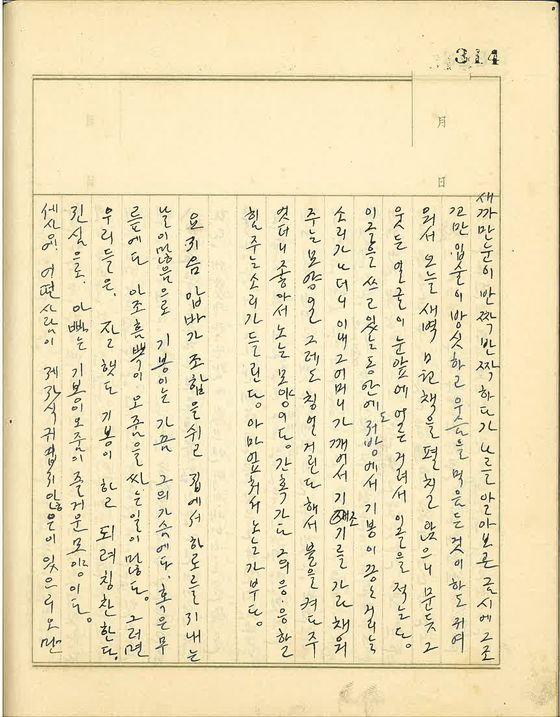 314
月
日
새까만 눈이 반짝반짝 하다가 나를 알아보곤 금시에 그 조
고만 입술이 방싯하고 웃음을 먹음는 것이 하도 귀여
워서 오늘 새벽 책을 펼칠 않으니 문듯 그
웃는 얼골이 눈앞에 어른거려서 이 글을 적는다.
이 글을 쓰고 있는 동안에도 저 방에서 기봉이 끙끙거리는
소리가 나더니 이내 그 어머니가 깨어서 기저기를 가라 채워
주는 모양일 그레도 칭얼거린다 해서 불을 켜다 주
엇더니 좋아서 노는 모양이다. 간혹 가다 그의 응·응 할
힘 주는 소리가 들린다. 아마 엎처서 노는가 부다.
요지음 압바가 조합을 쉬고 집에서 하로를 지내는
날이 많음으로 기봉이는 가끔 그의 가슴에다. 혹은 무
릎에다 아조 흠뻑이 오줌을 싸는 일이 많다. 그러면
우리들은, 잘 햇다 기봉이 하고 되려 칭찬한다.
진실으로. 아빠는 기봉이 오줌이 즐거운 모양이다.
세상에. 어떤 사람이 제 자식 귀엽지 않은 이 있으리오만